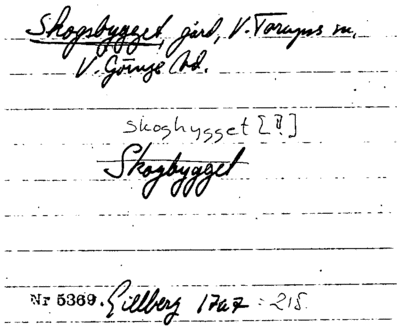 Skogsbygget, gård, V. Torups sn,
V. Göinge hd.
skoghygget [?]
Skogbygget
Nr 5369. Gillberg 1767 : 218.